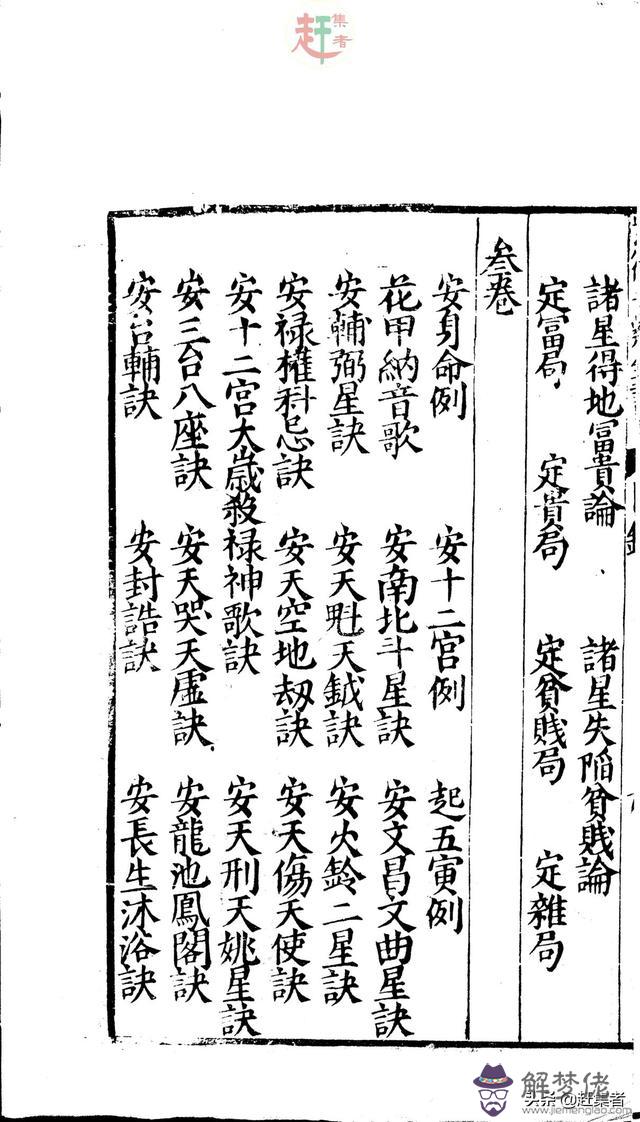 赶集者
諸星得地冨貴論 諸星失陷貧賎論
定冨局 定貴局 定貧賎局 定雜局
叄卷
安身命例 安十二宫例 起五寅例
花甲納音歌 安南北斗星訣 安文昌文曲星訣
安輔弼星訣 安天魁天鉞訣 安火鈴二星訣
安禄權科忌訣 安天空地刼訣 安天傷天使訣
安十二宫太歳殺禄神歌訣 安天刑天姚星訣
安三台八座訣 安天哭天虚訣 安龍池鳳閣訣
安台輔訣 安封誥訣 安長生沐浴訣
解梦佬
头条@赶集者
www.jiemenglao.com